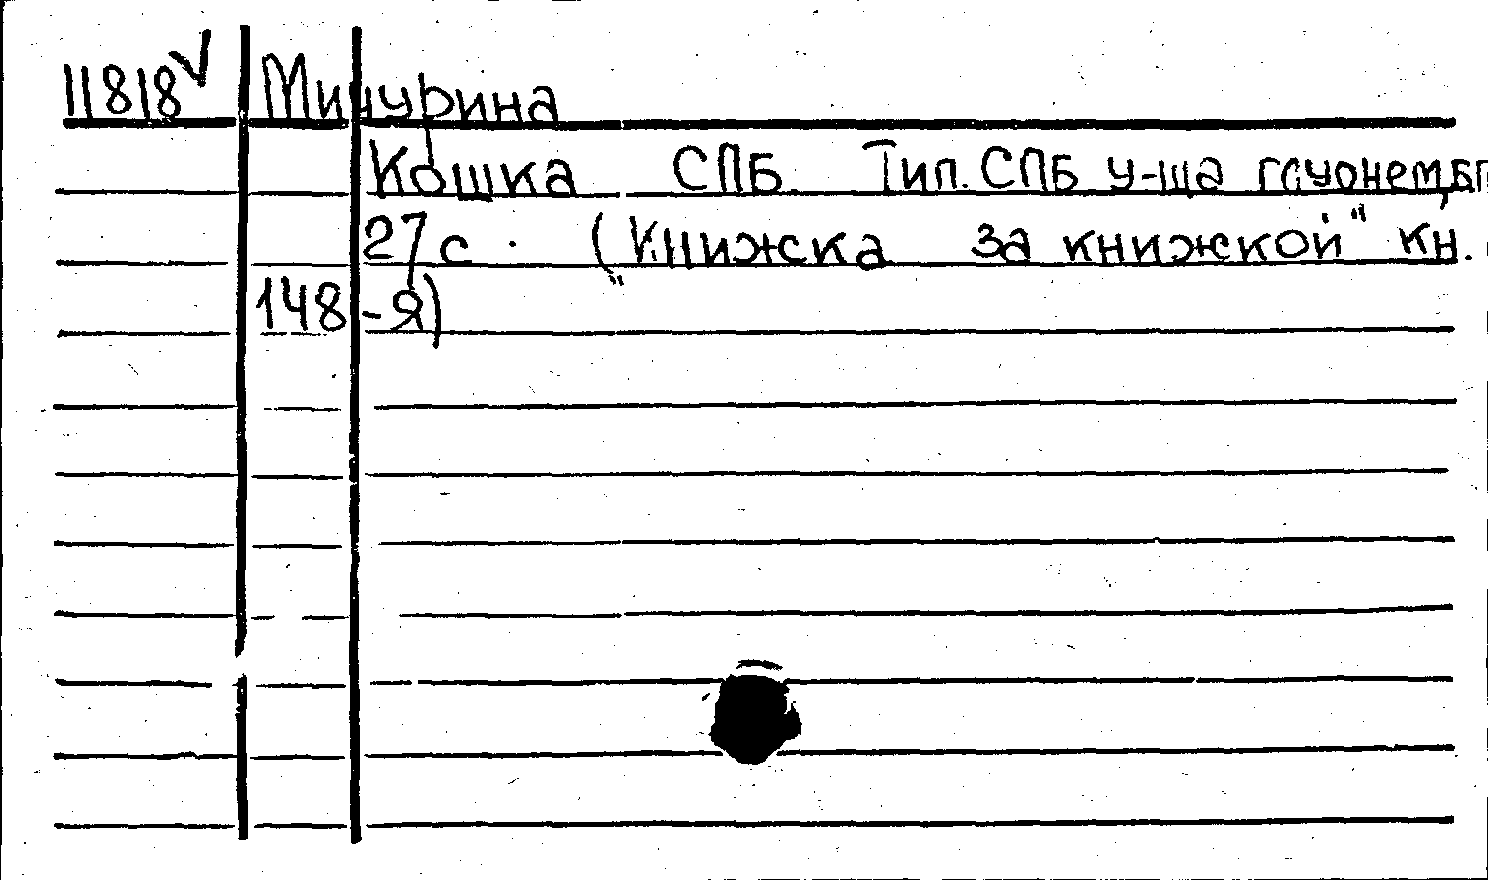 11818 V Мичурина
Кошка СПБ. Тип. СПБ у-ща глухонем,
27 с. („Книжка за книжкой" кн.
148-я)